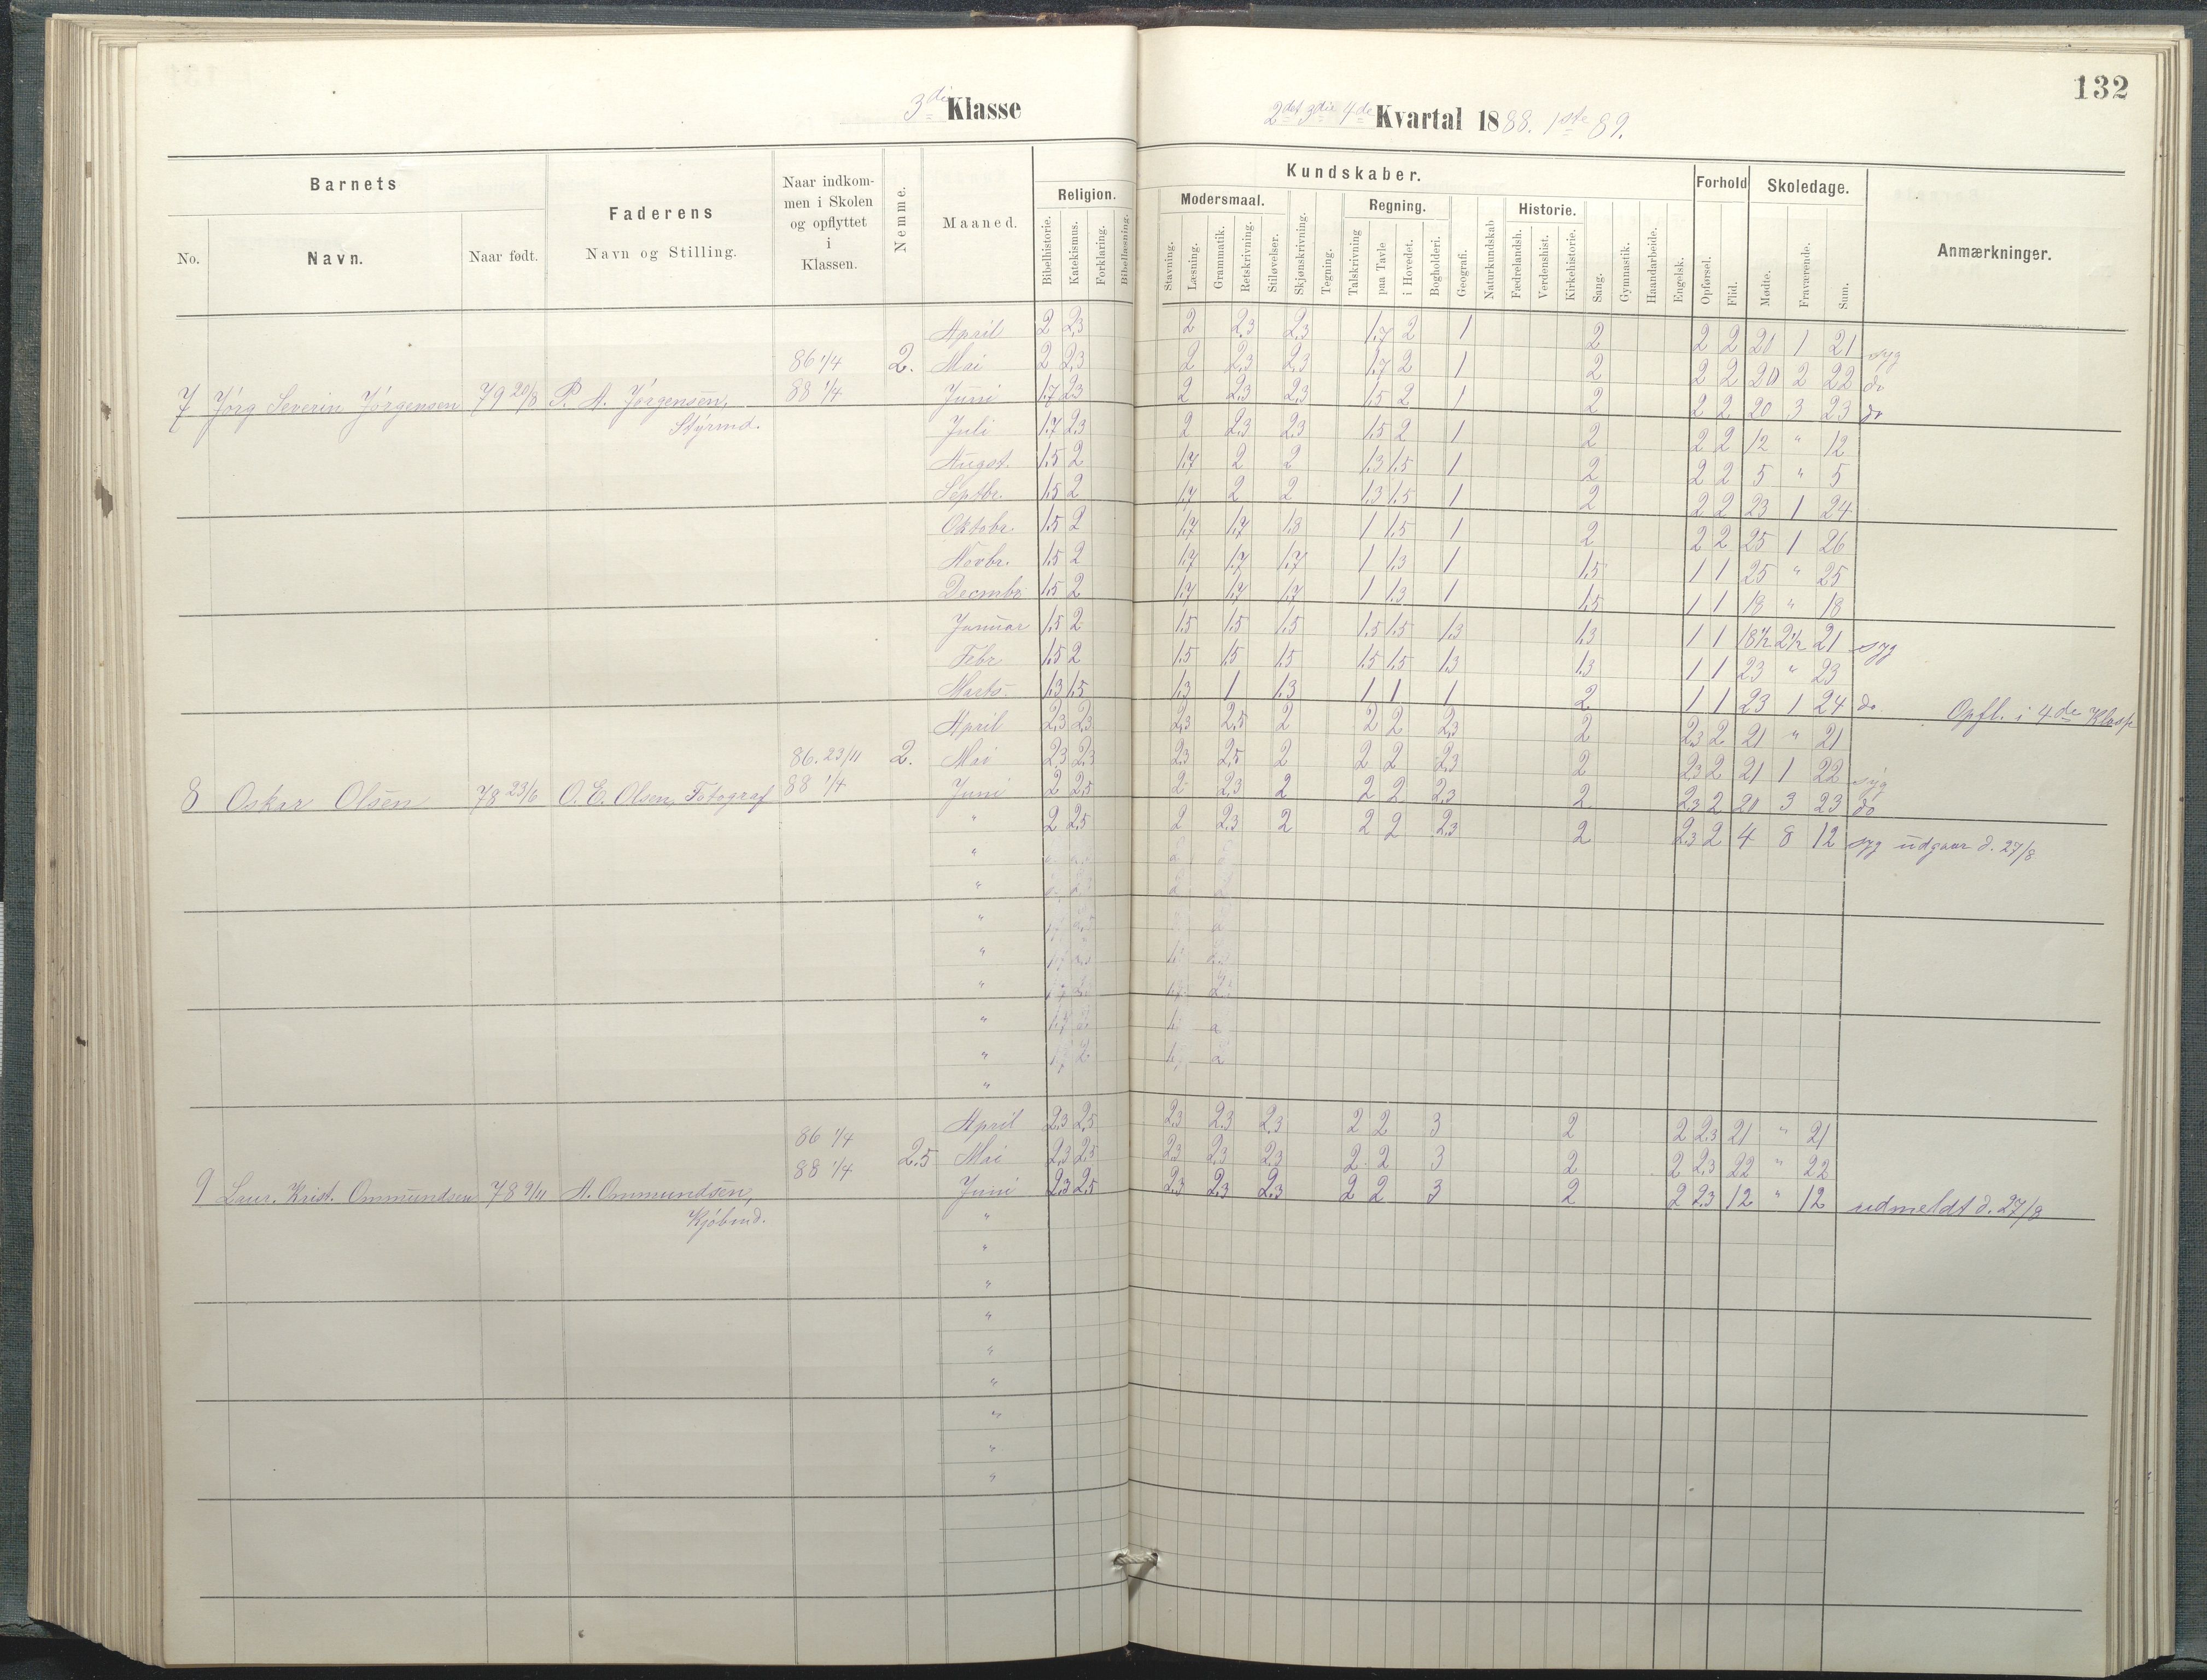 132
3die Klasse
2det 3die 4de Kvartal 1888. 1ste 89.
Barnets
No.
Navn.
Naar født.
Faderens
Navn og Stilling.
Naar indkom-
men i Skolen
og opflyttet
i
Klassen.
Nemme.
Maaned.
Kundskaber.
Religion.
Bibelhistorie.
Katekismus.
Forklaring.
Bibellæsning.
Modersmaal.
Stavning.
Læsning.
Grammatik.
Retskrivning.
Stiløvelser.
Skjønskrivning.
Tegning.
Regning.
Talskrivning
paa Tavle
i Hovedet.
Bogholderi.
Geografi.
Naturkundskab
Historie.
Fædrelandsh.
Verdenshist.
Kirkehistorie.
Sang.
Gymnastik.
Haandarbeide.
Engelsk.
Forhold
Opførsel.
Flid.
Skoledage.
Mødte.
Fraværende.
Sum.
Anmærkninger.
April 2 2,3 2 2,3 2,3 1,7 2 1 2 2 2 20 1 21 syg
86 1/4 2. Mai 2 2,3 2 2,3 2,3 1,7 2 1 2 2 2 20 2 22 do
7 Jørg Severin Jørgensen 79 20/8 P. A. Jørgensen, 88 1/4 Juni 1,7 2,3 2 2,3 2,3 1,5 2 1 2 2 2 20 3 23 do
Styrmd. Juli 1,7 2,3 2 2,3 2,3 1,5 2 1 2 2 2 12 " 12
Augst. 1,5 2 1,7 2 2 1,3 1,5 1 2 2 2 5 " 5
Septbr. 1,5 2 1,7 2 2 1,3 1,5 1 2 2 2 23 1 24
Oktobr. 1,5 2 1,7 1,7 1,8 1 1,5 1 2 2 2 25 1 26
Novbr. 1,5 2 1,7 1,7 1,7 1 1,3 1 1,5 1 1 25 " 25
Decmbr 1,5 2 1,7 1,7 1,7 1 1,3 1 1,5 1 1 18 " 18
Januar 1,5 2 1,5 1,5 1,5 1,5 1,5 1,3 1,3 1 1 18 1/2 2 1/2 21 syg
Febr 1,5 2 1,5 1,5 1,5 1,5 1,5 1,3 1,3 1 1 23 " 23
Marts 1,3 1,5 1,3 1 1,3 1 1 1 2 1 1 23 1 24 do. Opfl. i 4de Klasse
April 2,3 2,3 2,3 2,5 2 2 2 2,3 2 2,3 2 21 " 21
86. 23/11 2. Mai 2,3 2,3 2,3 2,5 2 2 2 2,3 2 2,3 2 21 1 22 syg
8 Oskar Olsen 78 23/6 O. E. Olsen, Fotograf 88 1/4 Juni 2 2,5 2 2,3 2 2 2 2,3 2 2,3 2 20 3 23 do
" 2 2,5 2 2,3 2 2 2 2,3 2 2,3 2 4 8 12 syg udgaar d. 27/8
"
"
"
"
"
"
"
"
86 1/4 April 2,3 2,5 2,3 2,3 2,3 2 2 3 2 2 2,3 21 " 21
88 1/4 2,5 Mai 2,3 2,5 2,3 2,3 2,3 2 2 3 2 2 2,3 22 " 22
9 Laur. Krist. Ommundsen 78 9/11 A. Ommundsen, Juni 2,3 2,5 2,3 2,3 2,3 2 2 3 2 2 2,3 12 " 12 udmeldt d. 27/8
Kjøbmd. "
"
"
"
"
"
"
"
"